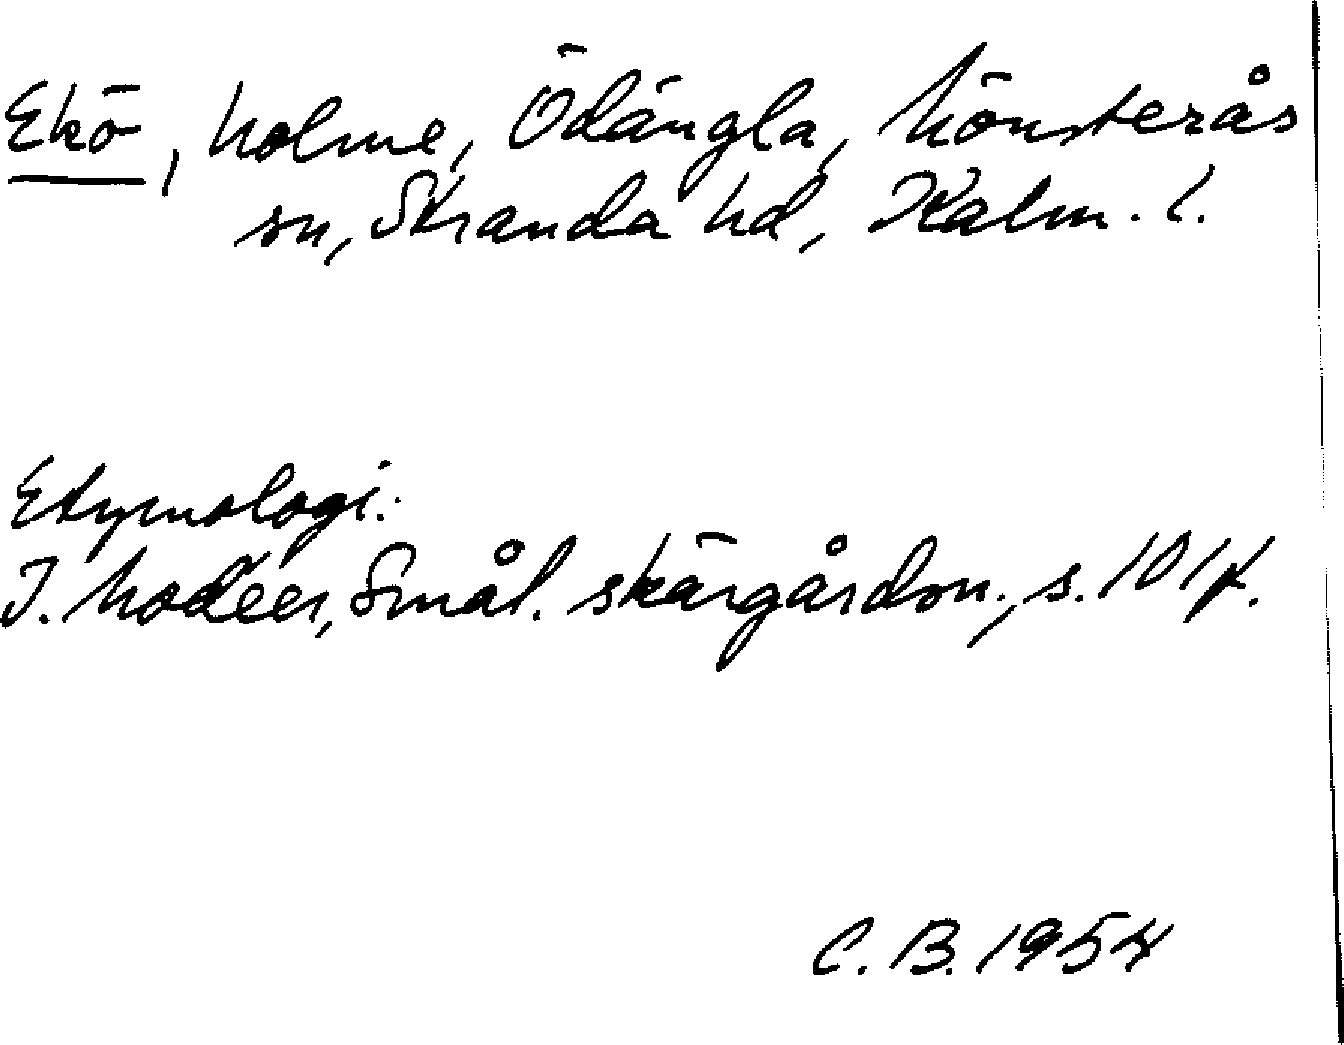 Ekö, holme, Ödängla, Mönsterås
sn, Stranda hd, Kalm. l.
Etymologi:
I. Modéer, Smål. skärgårdsn., s. 101 f.
C. B. 1954